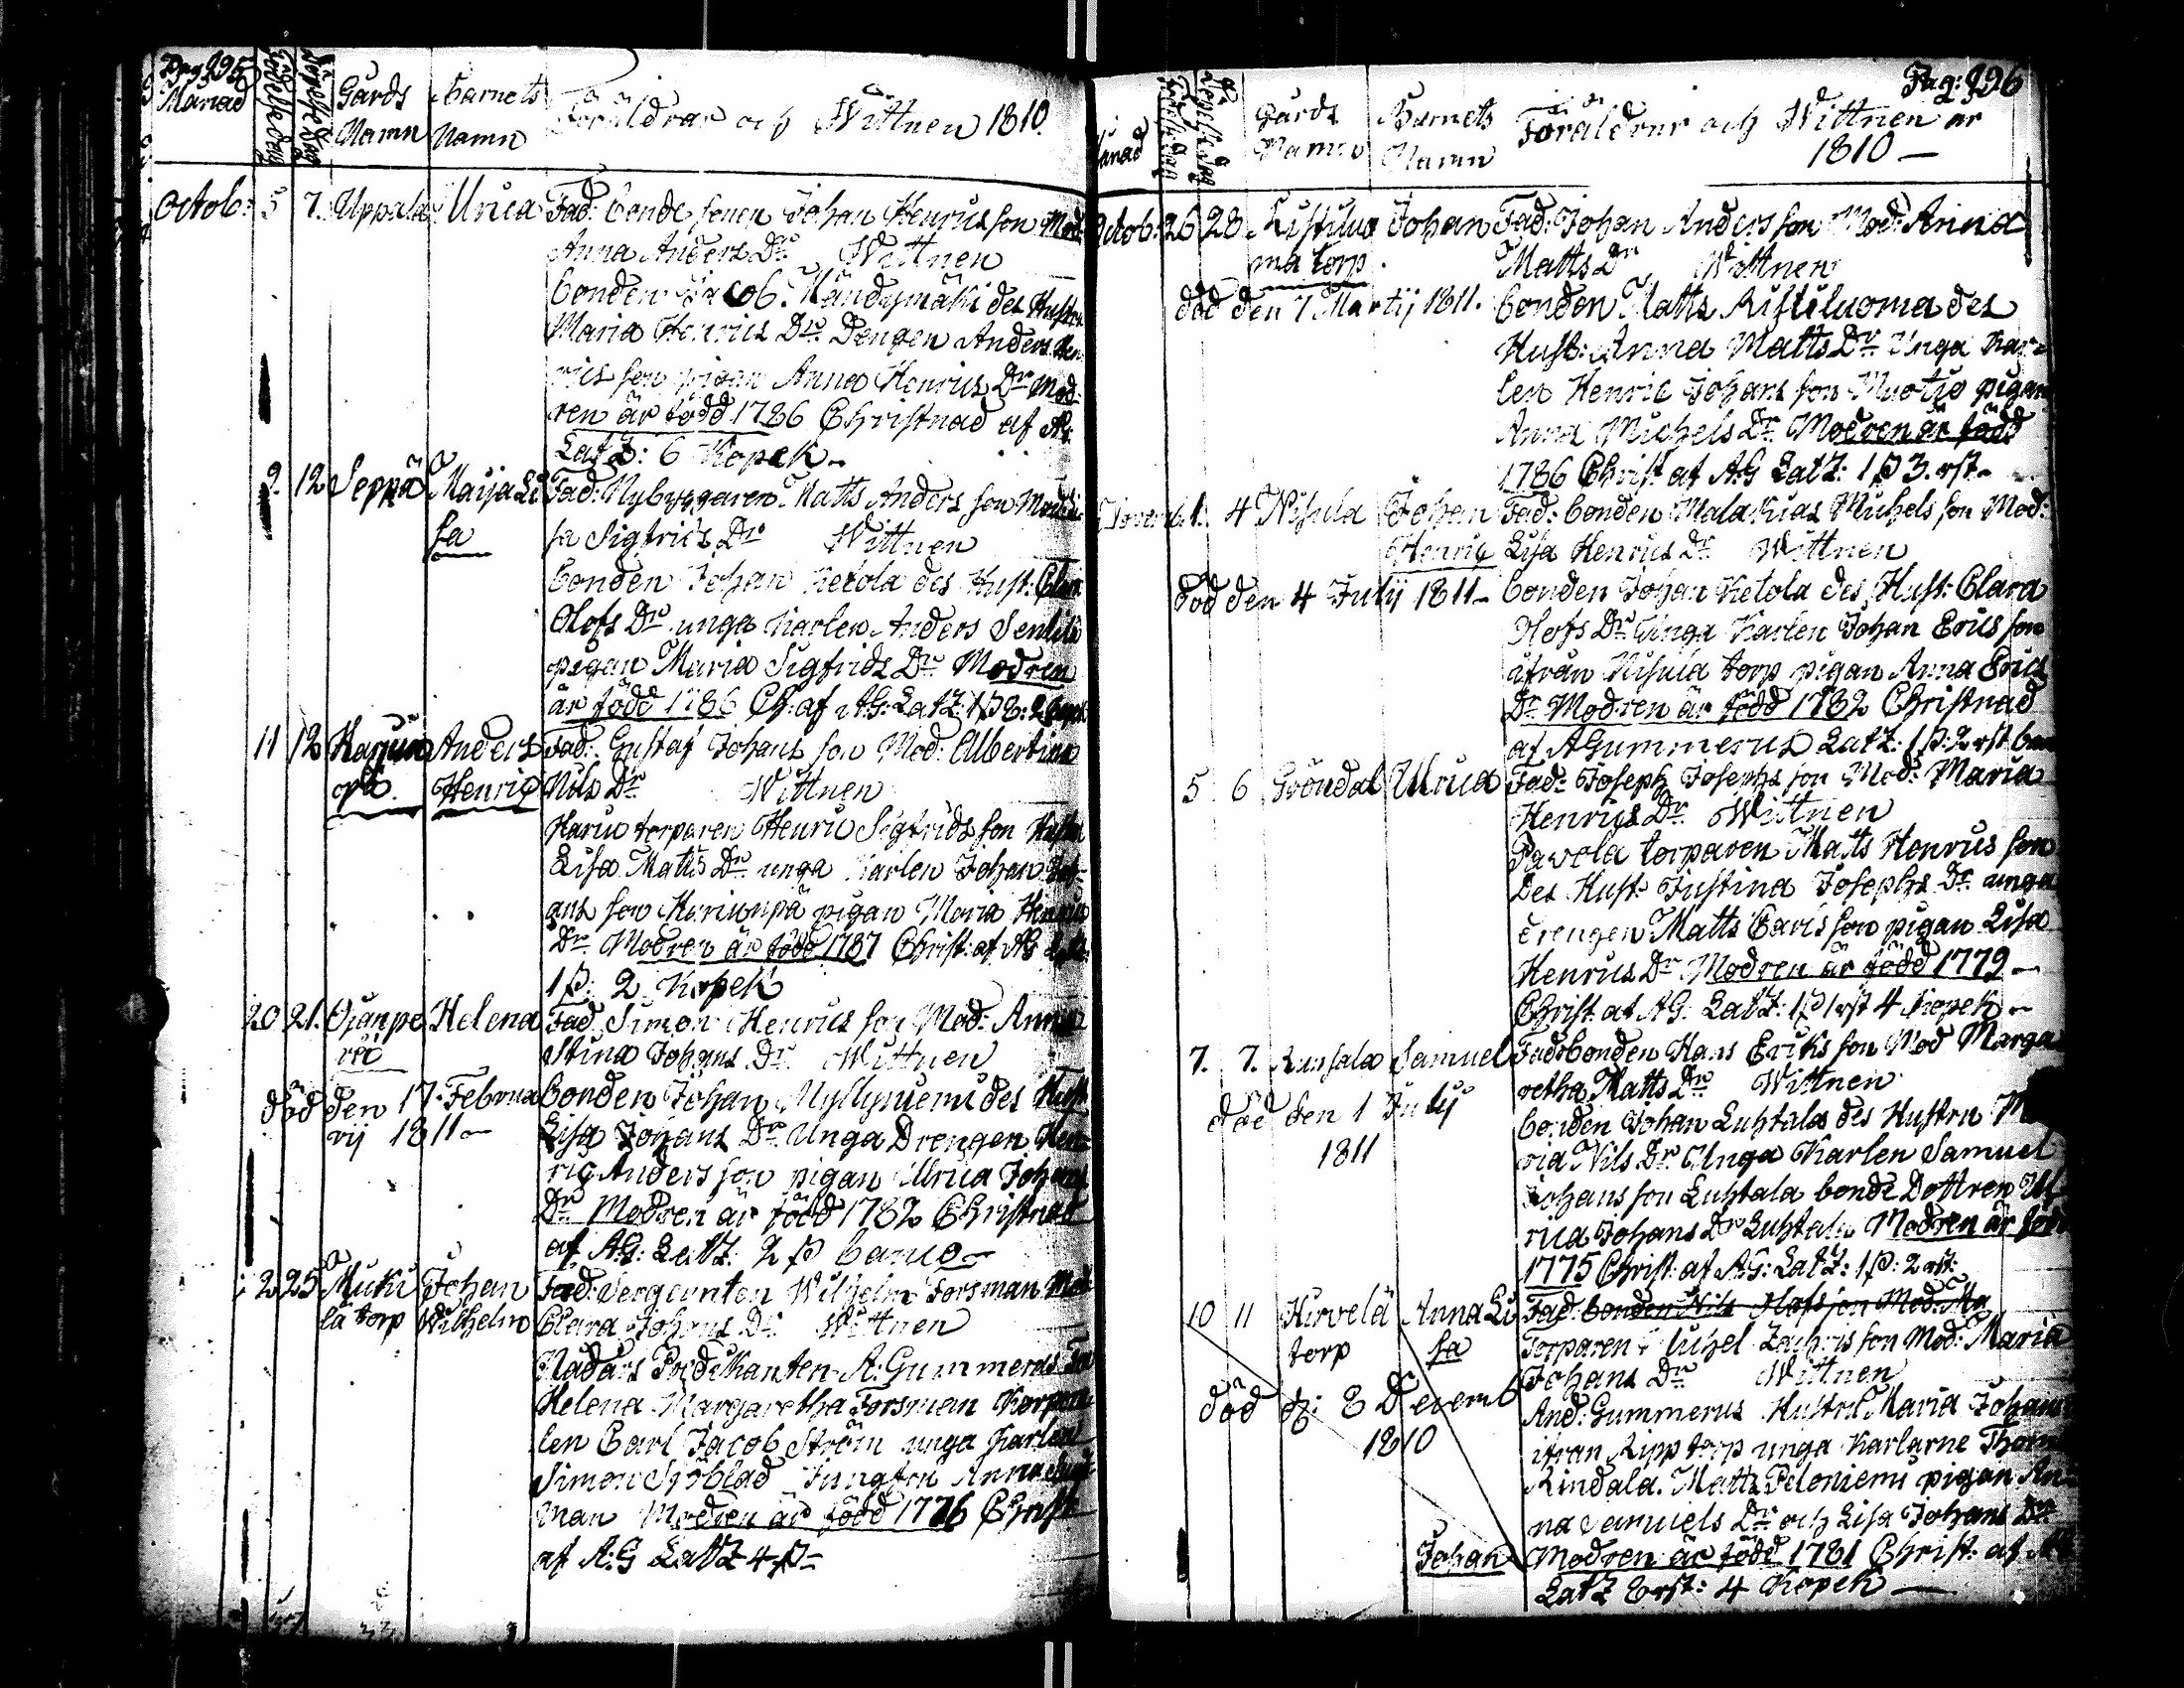 Pag 295
Månad
Födelse dag
Döpelse dag
Gårds Namn
Barnets Namn
Föräldrar och Wittnen 1810.
Octob: 5 7. Uppala Ulrica Fad: bonde sonen Johan Henrics son Mod:
Anna Anders Dr Wittnen
bonden Jacob Kändysmäki des Hustru
Maria Henrics Dr Drengen Anders Hen
rics son pigan Anna Henrics Dr Mod-
ren är född 1786 Christnad af AG
LatZ: 6 Kopek
9. 12 Seppä Maija Li Fad: Nybyggaren Matts Anders son Mod: Li
sa sa Sigfrids Dr Wittnen
bonden Johan Ketola des Hust: Clara
Olofs Dr unga karlen Anders
pigan Maria Sigfrids Dr Modren
är född 1786 Ch: af AG: LatZ: 1 β 8: 2 kopek
11 12 Anders Fad: Gustaf Johans son Mod: Albertina
Henric Nils Dr Wittnen
Harju torparen Henric Sigfrids son Hustru
Lisa Matts Dr unga karlen Johan Joh-
ans son pigan Maria Henrics
Dr Modren är född 1787 Christ: af AG LatZ:
1 β: 2 Kopek
20 21. Ojanpe Helena Fad Simon Henrics son Mod: Anna
rä Stina Johans Dr Wittnen
död den 17 Februa bonden Johan Myllyniemi des Hust
rij 1811 Lisa Johans Dr Unga Drengen Hen
ric Anders son pigan Ulrica Johans
Dr Modren är född 1782 Christnad
af AG: LatZ: 2 β banco
25 Muku Johan Fad: Sergeanten Wilhelm Forsman Mod
la torp Wilhelm Clara Johans Dr Wittnen
Nådårs Predikanten A: Gummerus Fru
Helena Margaretha Forsman Korpra
len Carl Jacob Ström unga karlen
Simon Sjöblad Jungfrun Anna
man Modren är född 1776 Christ
af A: G LatZ 4 β
Pag: 296
Månad
Födelse dag
Döpelse dag
Gårds Namn
Barnets Namn
Föräldrar och Wittnen år
1810
Octob: 26 28 Ristiluo Johan Fad: Johan Anders son Mod: Anna
ma torp Matts Dr Wittnen
död den 7 Martij 1811. bonden Matts Ristiluoma des
Hust: Anna Matts Dr Unga Kar-
len Henric Johans son Muotio pigan
Anna Michels Dr Modren är född
1786 Christ af AG LatZ: 1 β 3. rst
Novemb. 1. 4 Nisula Johan Fad: bonden Malakias Michels son Mod:
Henric Lisa Henrics Dr Wittnen
död den 4 Julij 1811 bonden Johan Ketola des Hust: Clara
Olofs Dr Unga Karlen Johan Erics son
ifrån Nisula torp pigan Anna Erics
Dr Modren är född 1782 Christnad
af AGummerus LatZ: 1 β: 2 rst
5 6 Gröndal Ulrica Fad: Joseph Josephs son Mod: Maria
Henrics Dr Wittnen
Pavola torparen Matts Henrics son
des Hust: Justina Josephs Dr unga
drengen Matts Davids son pigan Lisa
Henrics Dr Modren är född 1779
Christ af AG: LatZ: 1 β 1 rst 4 kopek
7. 7. Samuel Fad: bonden Hans Eriks son Mod Marga
retha Matts Dr Wittnen
död den 1 Julij bonden Johan Luhtala des Hustru Ma
1811 ria Nils Dr Unga Karlen Samuel
Johans son Luhtala bonde Dottren Ul
rica Johans Dr Luhtala Modren är född
1775 Christ: af AG: LatZ: 1 β: 2 rst:
10 11 Hirvelä Anna Li Fad: bonden Nils Olofs son Mod: Ma
torp sa Torparen Michel Zachris son Mod: Maria
Johans Dr Wittnen
död d: 8 Decemb And: Gummerus Hustru Maria Johans
1810 ifrån Ripp torp unga Karlarne Thom
Rindala. Matts Peloniemi pigan An
na Samuels Dr och Lisa Johans Dr
Johan Modren är född 1781 Christ: af AG
LatZ 8 rst: 4 Kopek